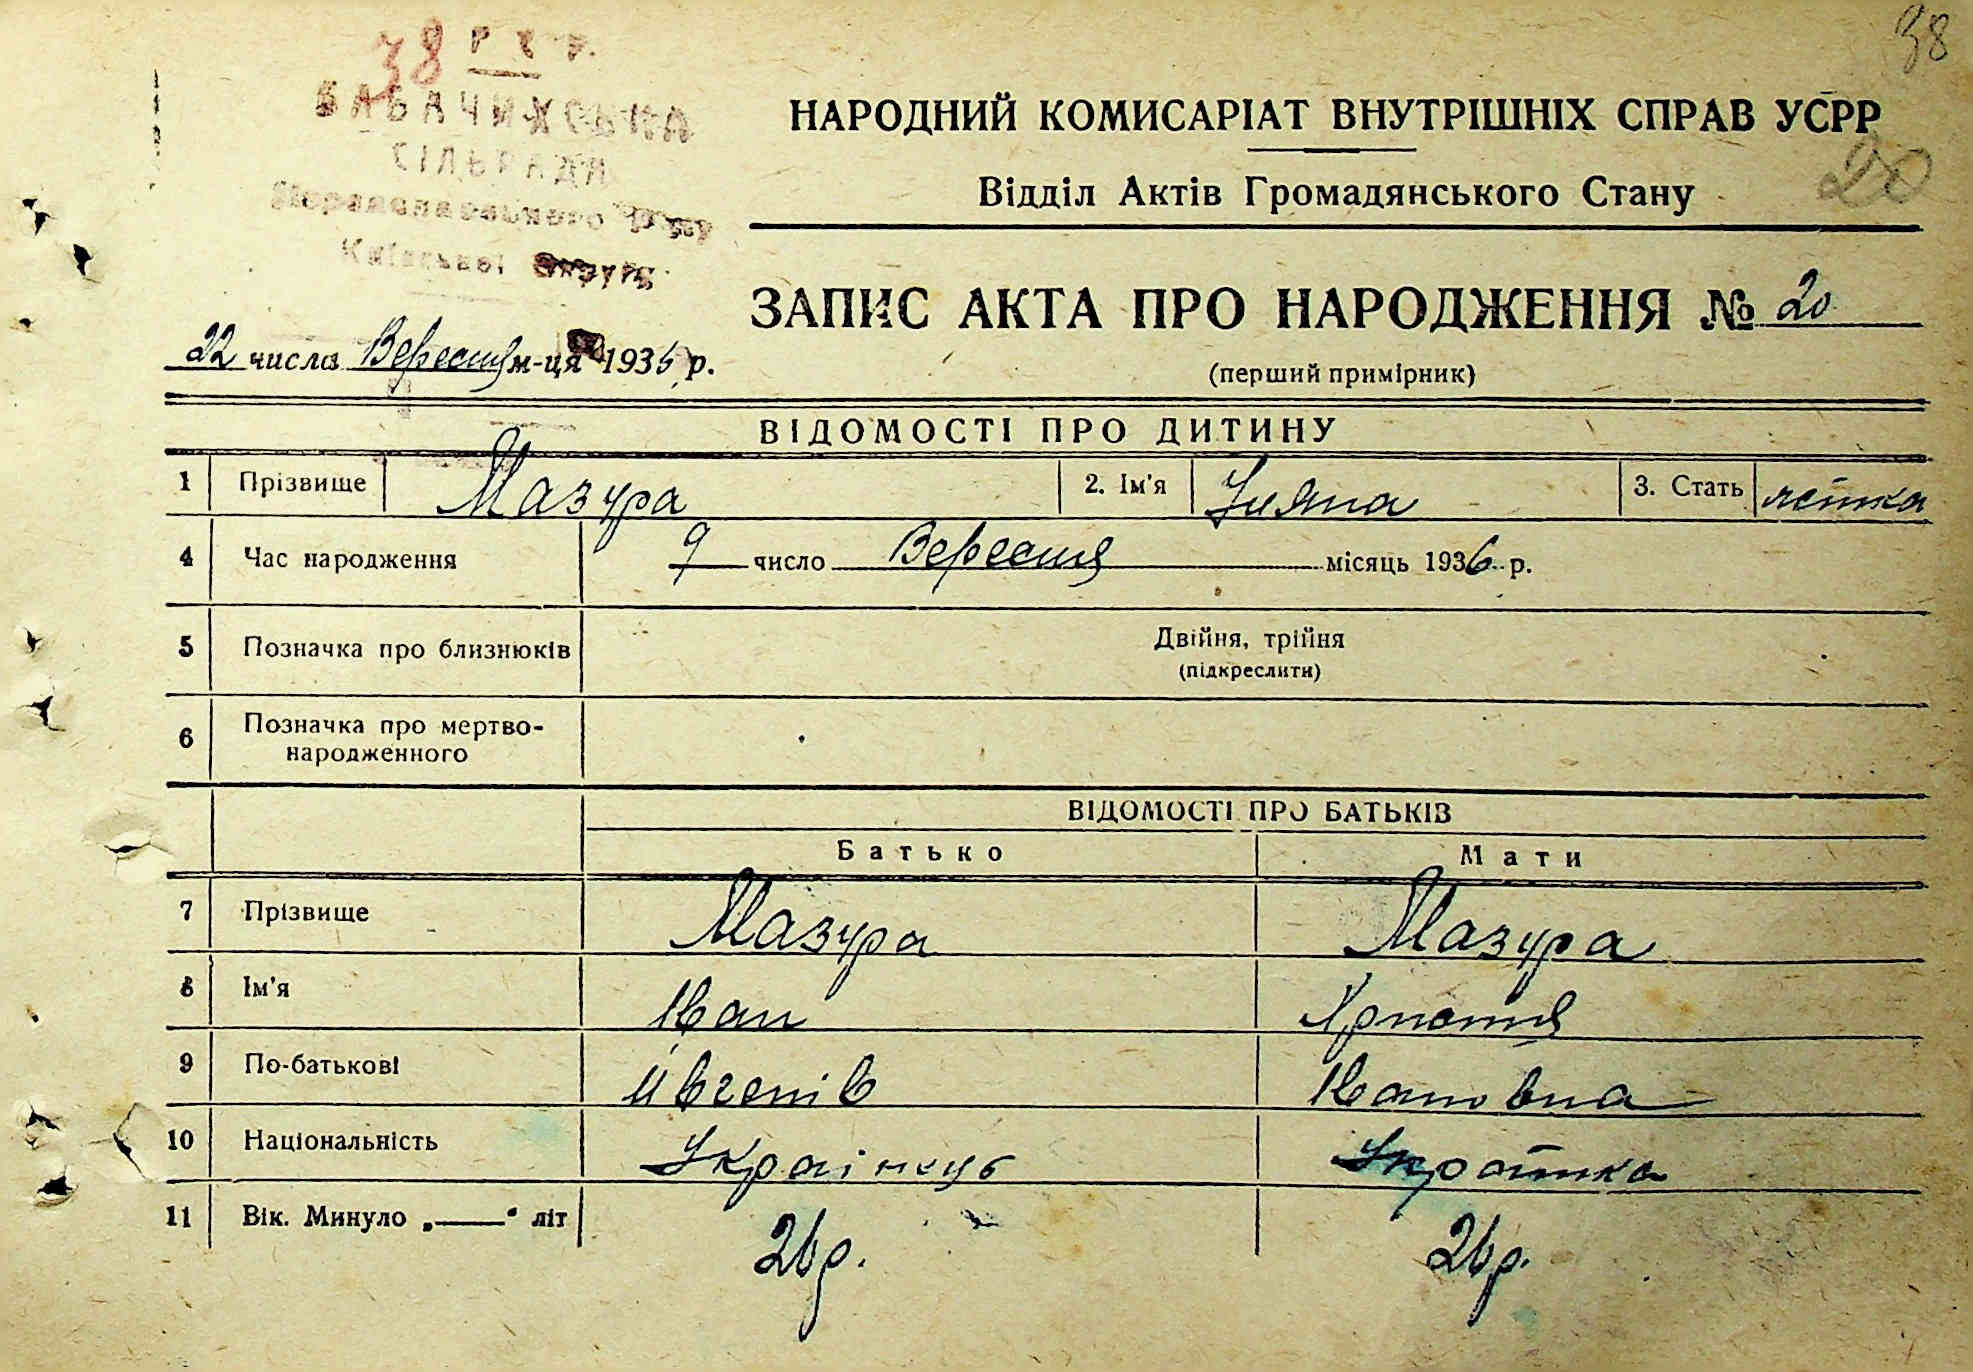 38
38 Р Х Р.
БАБАЧИХСЬКА
СІЛЬРАДА
Переяславського р-ну
Київської Округи
НАРОДНИЙ КОМИСАРІАТ ВНУТРІШНІХ СПРАВ УСРР
20
Відділ Актів Громадянського Стану
ЗАПИС АКТА ПРО НАРОДЖЕННЯ № 20
22 числа Вересня м-ця 1936 р.
(перший примірник)
ВІДОМОСТІ ПРО ДИТИНУ
1 Прізвище Мазура 2. Ім'я Уляна 3. Стать
4 Час народження 9 число Вересня місяць 1936 р.
5 Позначка про близнюків Двійня, трійня
(підкреслити)
6 Позначка про мертво-
народженного
ВІДОМОСТІ ПРО БАТЬКІВ
Батько Мати
7 Прізвище Мазура Мазура
8 Ім'я Іван Христня
9 По-батькові Ивгенів Івановна
10 Національність Українець Украінка
11 Вік. Минуло „——“ літ 26 р. 26 р.